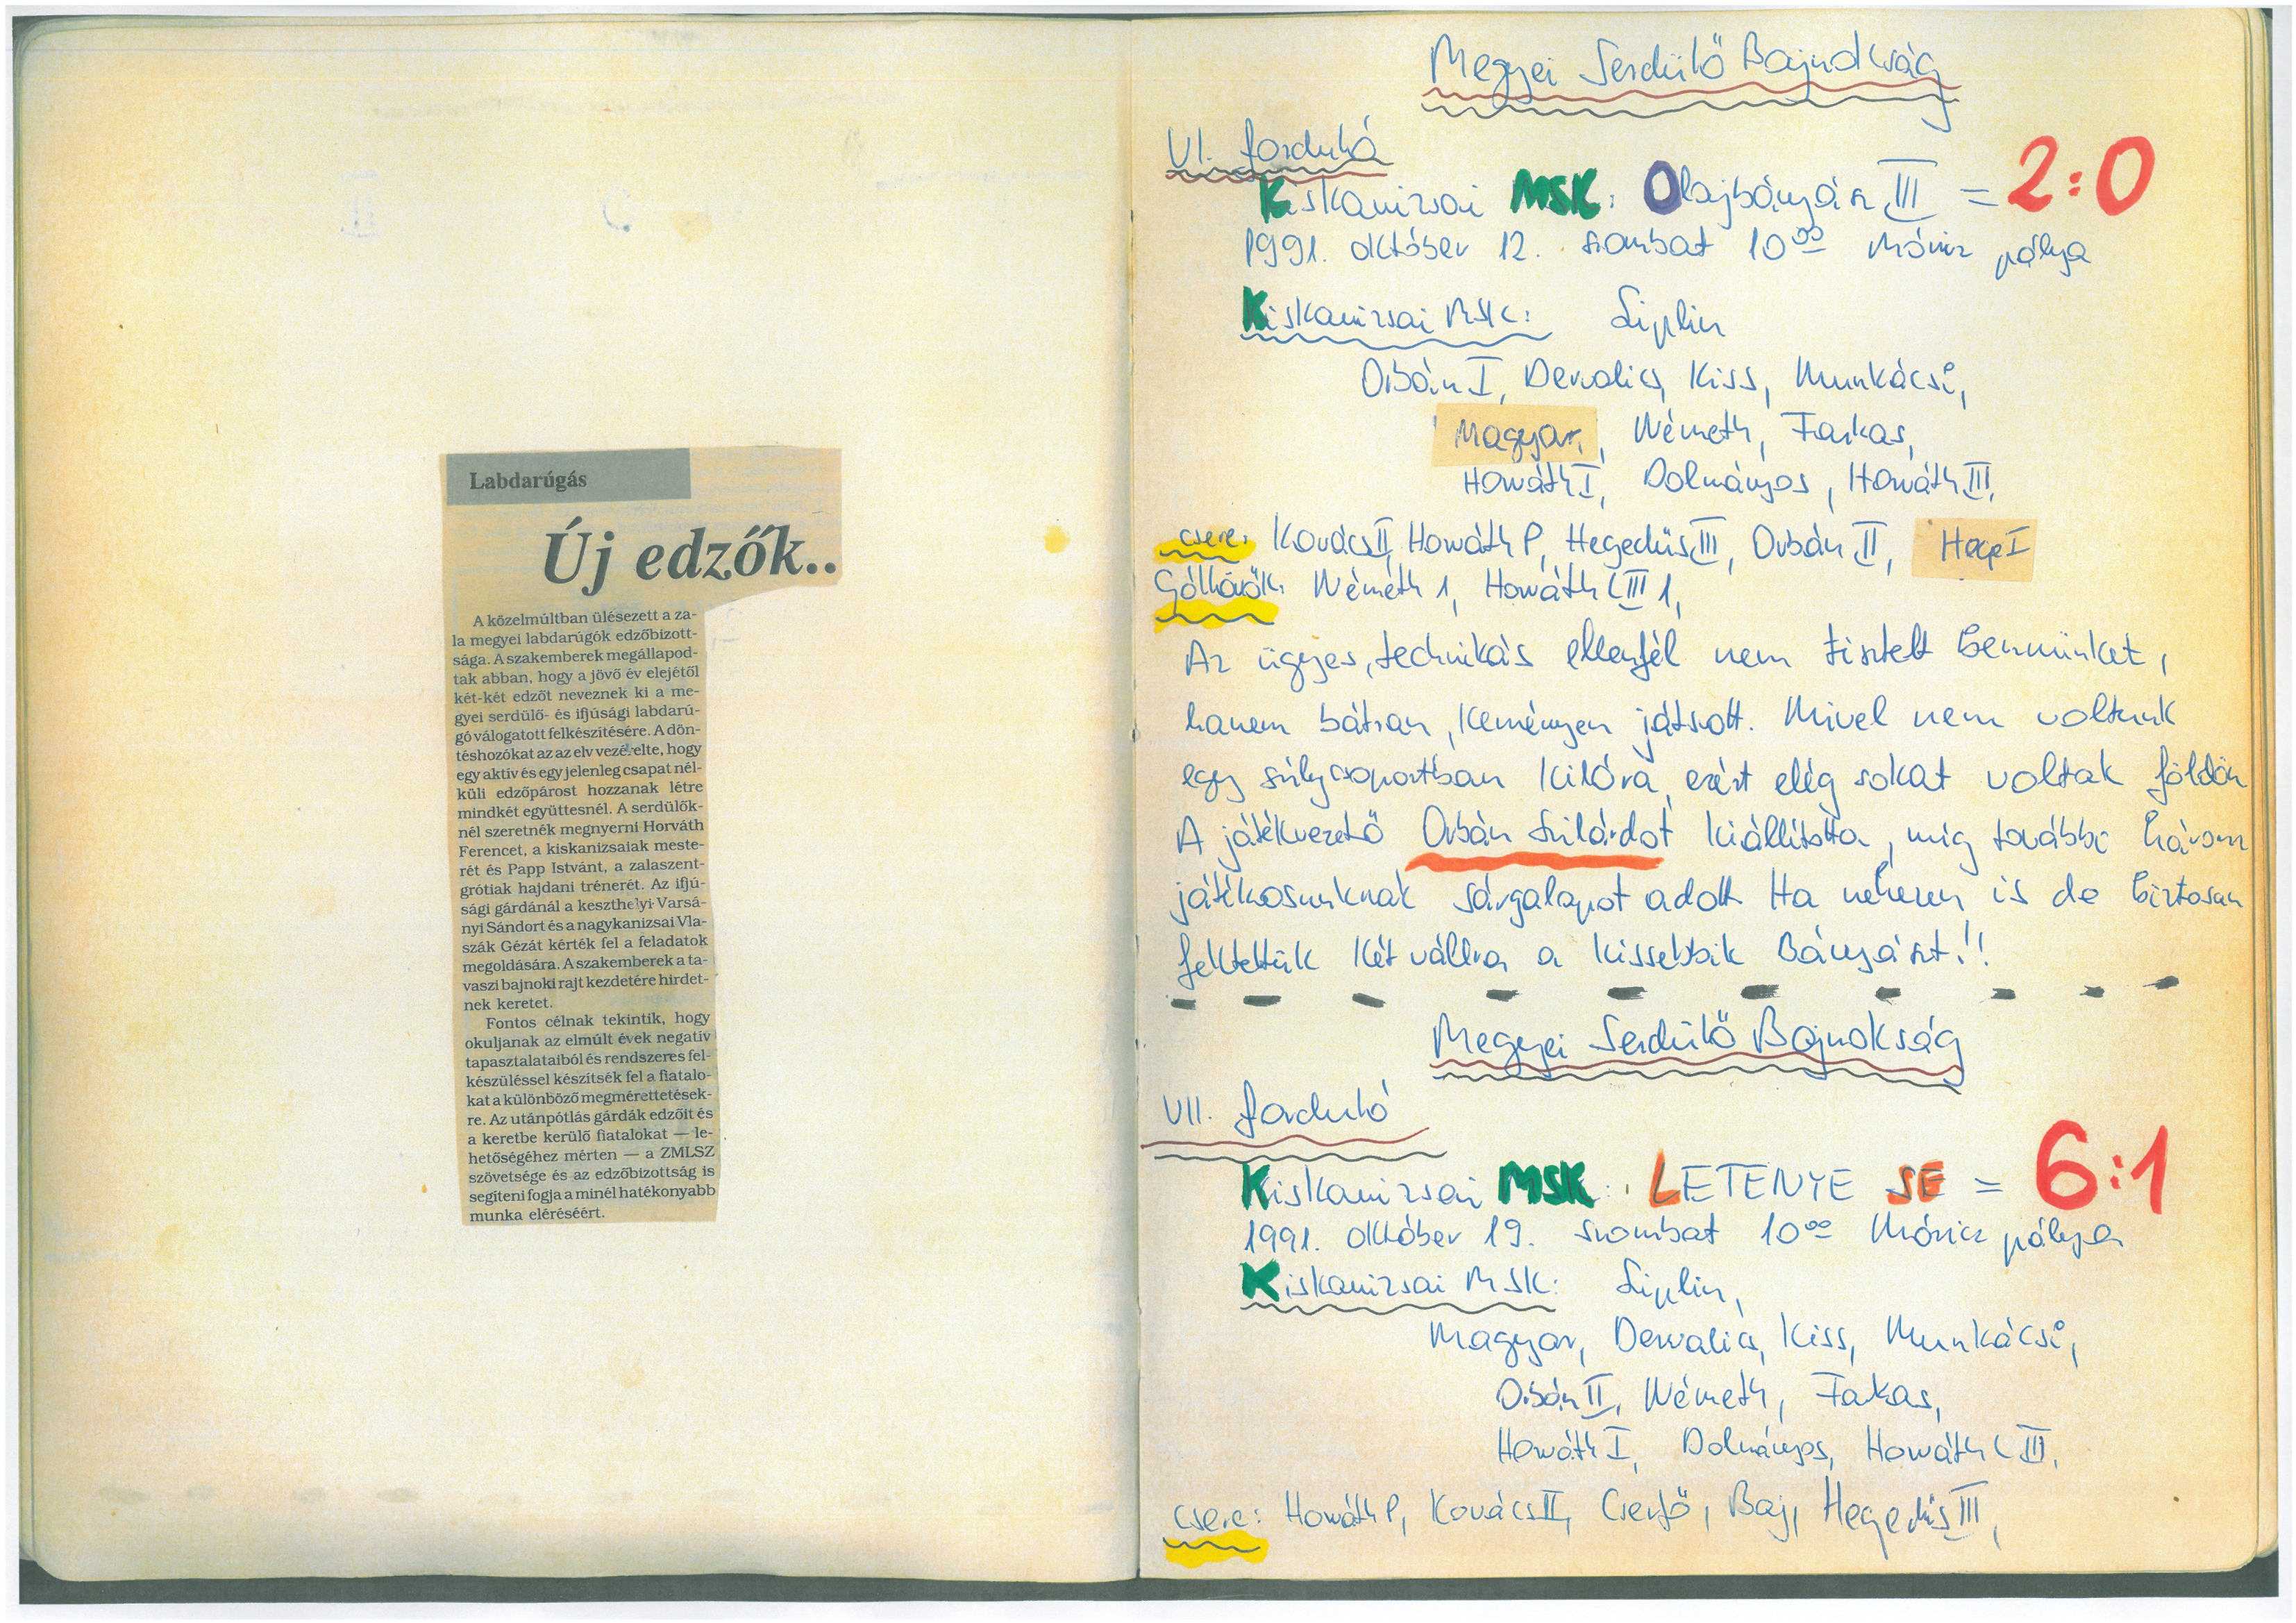 Labdarúgás
Új edzők..
A közelmúltban ülésezett a za-
la megyei labdarúgók edzőbizott-
sága. A szakemberek megállapod-
tak abban, hogy a jövő év elejétől
két-két edzőt neveznek ki a me-
gyei serdülő- és ifjúsági labdarú-
gó válogatott felkészítésére. A dön-
téshozókat az az elv vezérelte, hogy
egy aktív és egy jelenleg csapat nél-
küli edzőpárost hozzanak létre
mindkét együttesnél. A serdülők-
nél szeretnék megnyerni Horváth
Ferencet, a kiskanizsaiak meste-
rét és Papp Istvánt, a zalaszent-
grótiak hajdani trénerét. Az ifjú-
sági gárdánál a keszthelyi Varsá-
nyi Sándort és a nagykanizsai Vla-
szák Gézát kérték fel a feladatok
megoldására. A szakemberek a ta-
vaszi bajnoki rajt kezdetére hirdet-
nek keretet.
Fontos célnak tekintik, hogy
okuljanak az elmúlt évek negatív
tapasztalataiból és rendszeres fel-
készüléssel készítsék fel a fiatalo-
kat a különböző megmérettetések-
re. Az utánpótlás gárdák edzőit és
a keretbe kerülő fiatalokat — le-
hetőségéhez mérten — a ZMLSZ
szövetsége és az edzőbizottság is
segíteni fogja a minél hatékonyabb
munka eléréséért.
Megyei Serdülő Bajnokság
VI. forduló
Kiskanizsai MSK: Olajbányász III = 2:0
1991. október 12. szombat 10⁰⁰ Móricz pálya
Kiskanizsai MSK: Liplin
Orbán I, Dervalics, Kiss, Munkácsi,
Magyar, Németh, Farkas,
Horváth I, Dolmányos, Horváth III,
csere: Kovács II, Horváth P, Hegedüs III, Orbán II,
Góllövők: Németh 1, Horváth L III 1,
Az ügyes, technikás ellenfél nem tisztelt bennünket,
hanem bátran, keményen játszott. Mivel nem voltunk
egy súlycsoportban kilóra, ezért elég sokat voltak földön
A játékvezető Orbán Szilárdot kiállította, míg további három
játékosunknak sárgalapot adott. Ha nehezen is de biztosan
fektettük két vállra a kissebbik Bányászt!!
Megyei Serdülő Bajnokság
VII. forduló
Kiskanizsai MSK: LETENYE SE = 6:1
1991. október 19. szombat 10⁰⁰ Móricz pálya
Kiskanizsai MSK: Liplin,
Magyar, Dervalics, Kiss, Munkácsi,
Orbán II, Németh, Farkas,
Horváth I, Dolmányos, Horváth L III,
csere: Horváth P, Kovács II, Cserfő, Baj, Hegedüs III,